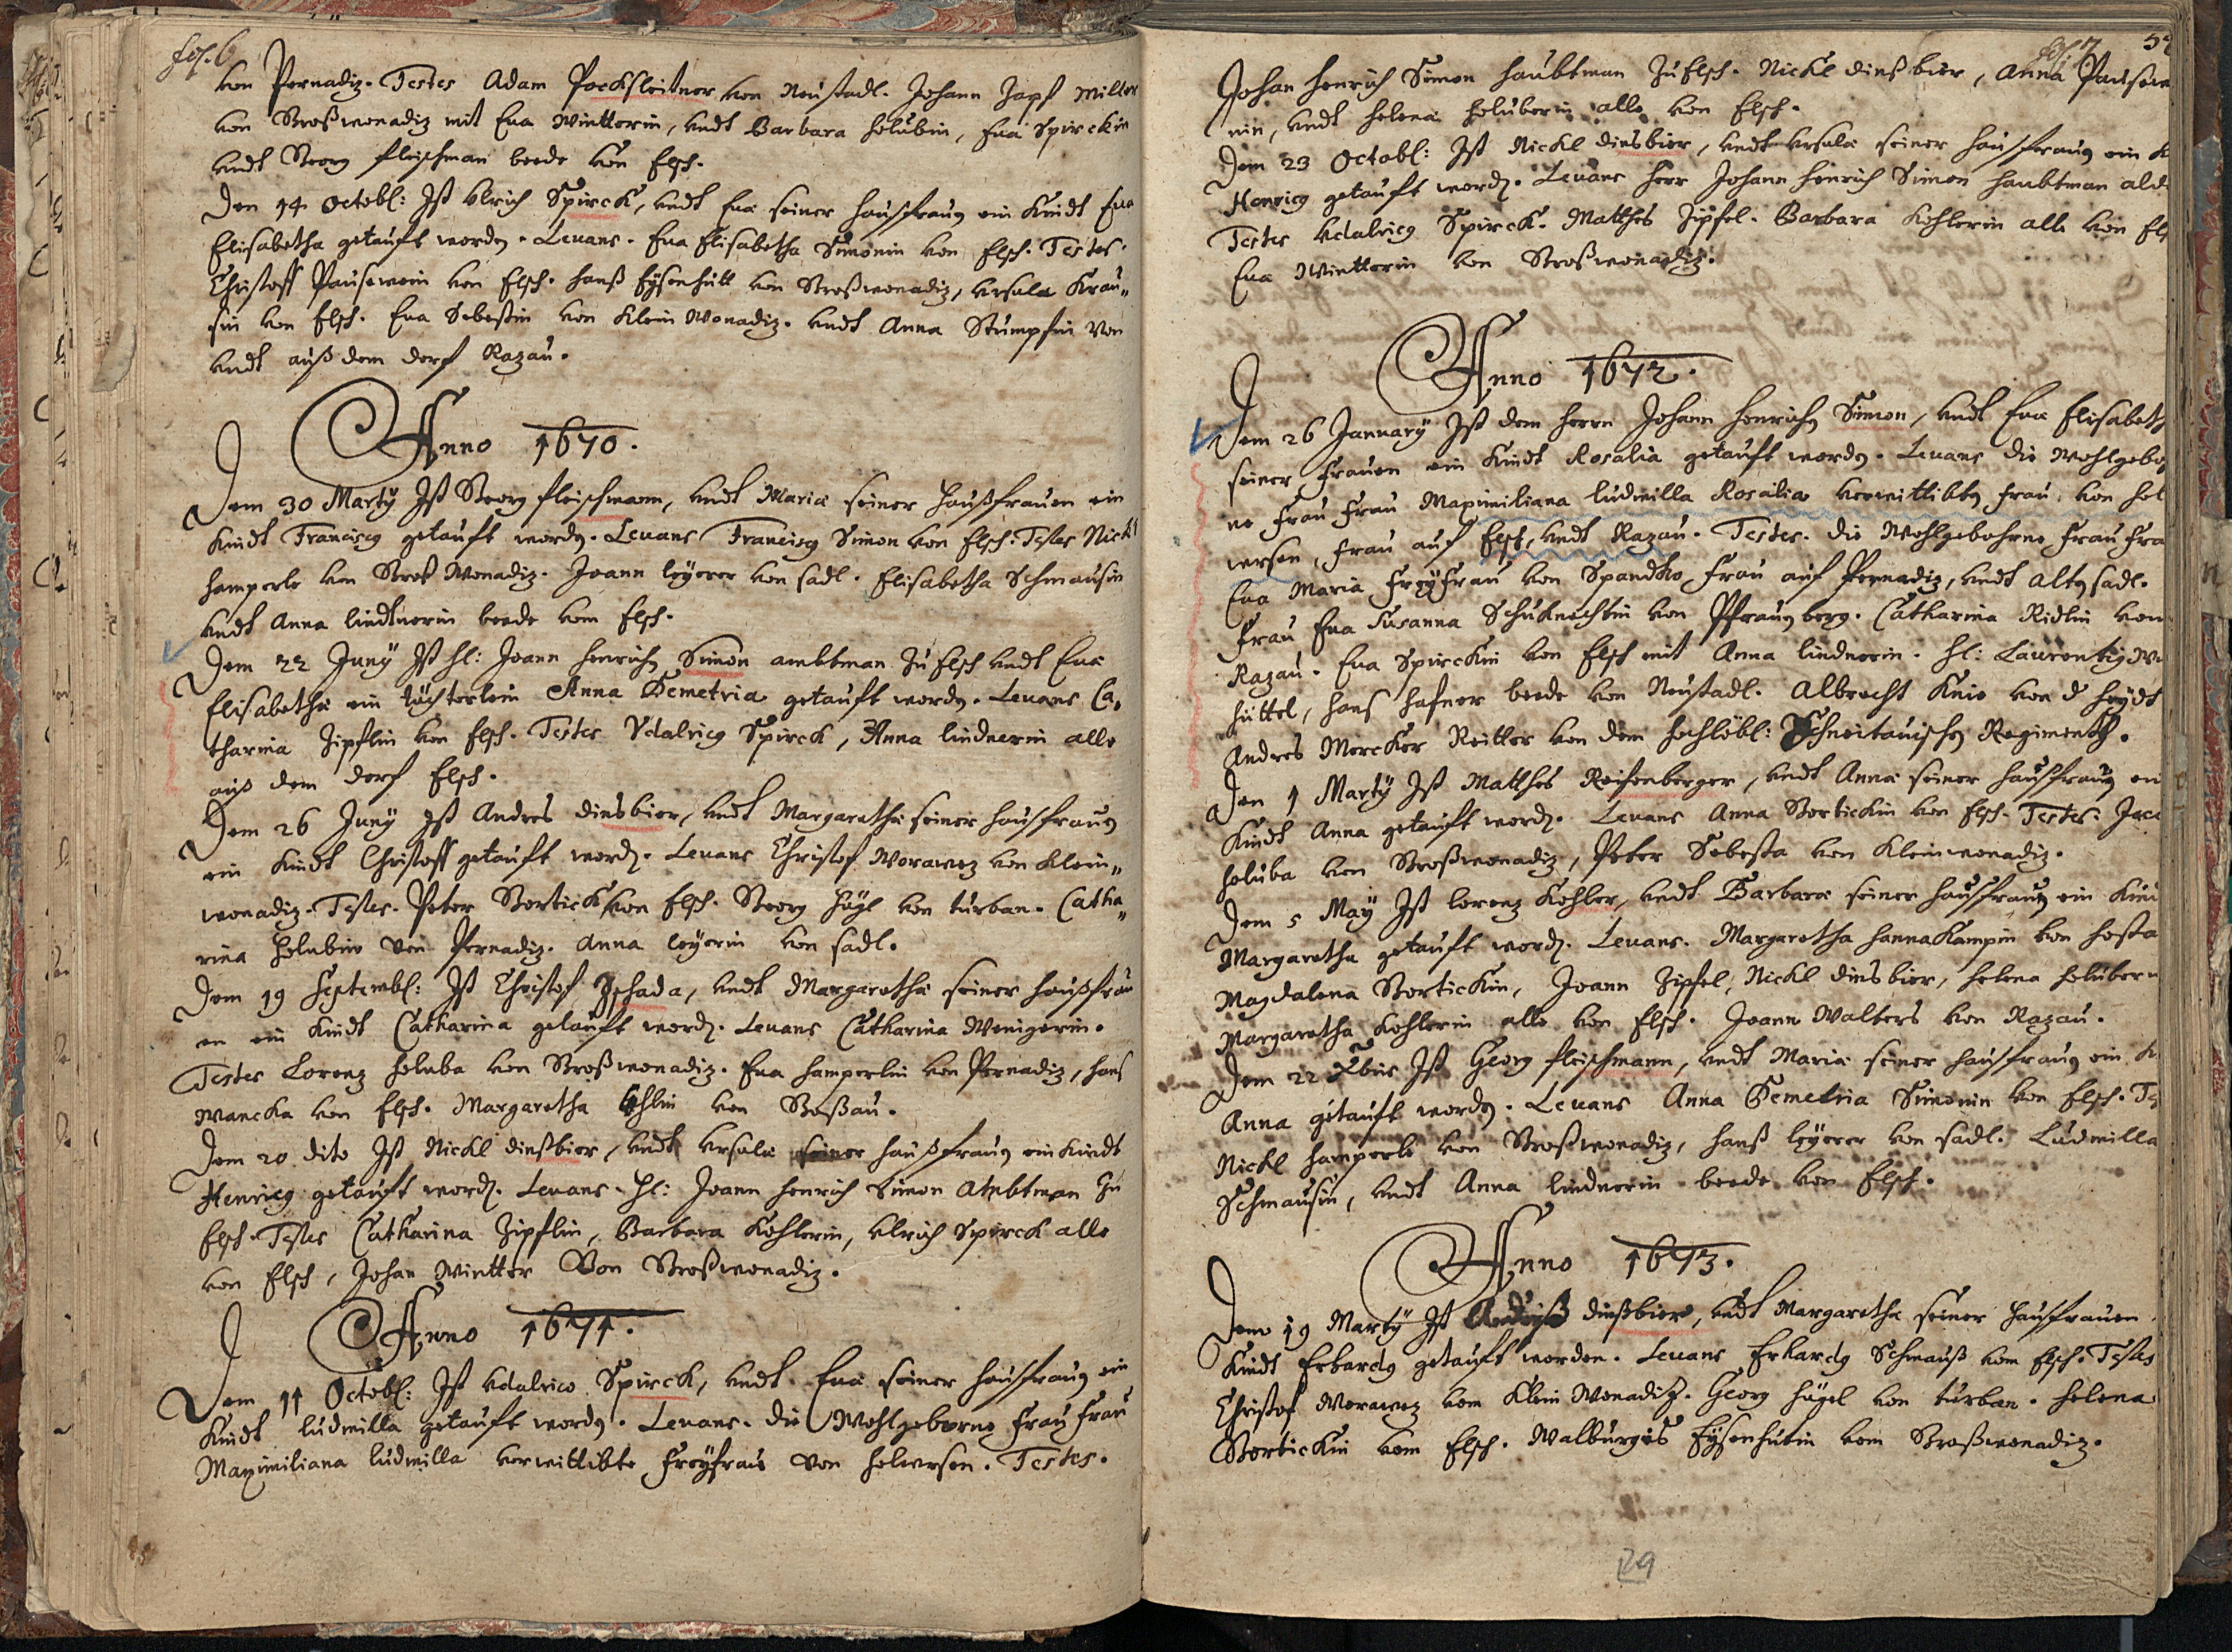 fol. 6
von Pernadiz. Testes Adam Pocksleitner von Neustadl. Johann Zapf Miller
von Großwonadiz mit Eva Wintterin, undt Barbara holubin, Eva Spirckin
undt Georg fleischman beede von Elsch.
Den 14 Octobl: Ist Ulrich Spirck, undt Eva seiner hausfrauen ein Kindt Eva
Elisabetha getauft worden. Levans. Eva Elisabetha Simonin von Elsch. Testes.
Christoff Pausewein von Elsch. hanß Eysenhütt von Großwonadiz, Ursula Krau„
sin von Elsch. Eva Sebestin von Klein Wonadiz. undt Anna Stümpfin von
undt auß dem dorf Razau.
Anno 1670.
Dem 30 Marty Ist Georg fleischmann, undt Maria seiner Haußfrauen ein
Kindt Franciscus getauft worden. Levans Franciscus Simon von Elsch. Testes Nickl
hamperle von Groß Wonadiz. Joann leyerer von sadl. Elisabetha Schmausin
undt Anna lindtnerin beede vom Elsch.
Dem 22 Juny Ist hl: Joann henrich Simon ambtman zu Elsch undt Eva
Elisabetha ein töchterlein Anna Demetria getauft worden. Levans Ca„
tharina Zipflin von Elsch. Testes Udalricus Spirck, Anna lindnerin alle
auß dem dorf Elsch.
Dem 26 Juny Ist Andres dinsbier, undt Margaretha seiner hausfrauen
ein Kindt Christoff getauft word. Levans Christof Worawez von Klein„
wonadiz. Testes. Peter Bortick von Elsch. Georg Hügl von türban. Catha„
rina Holubin von Pernadiz. Anna leyerin von sadl.
Dem 19 Septembl: Ist Christof Zschada, undt Margaretha seiner haußfrau
en ein Kindt Catharina getauft word. Levans Catharina Wenigerin.
Testes Lorenz holuba von Großwonadiz. Eva hamperlin von Pernadiz, hans
Wancka von Elsch. Margaretha von Goßau.
Dem 20 dito Ist Nickl dinßbier, undt Ursula seiner haußfrauen ein Kindt
Henricus getauft word. Levans. hl: Joann henrich Simon Ambtman zu
Elsch. Testes Catharina Zipflin, Barbara Kohlerin, Ulrich Spirck alle
von Elsch, Johan Wintter von Großwonadiz.
Anno 1671.
Dem 11 Octobl: Ist Udalrico Spirck, undt Eva seiner hausfrauen ein
Kindt ludmilla getauft worden. Levans. die Wohlgeborne Frau Frau
Maximiliana ludmilla verwittibte Freyfrau von helversen. Testes.
fol. 7
Johan henrich Simon haubtman zu Elsch. Nickl dinßbier, Anna Pausewe
nin, undt helena holuberin alle von Elsch.
Dem 23 Octobl: Ist Nickl dinsbier, undt Ursula seiner hausfrauen ein K
Henricus getauft word. Levans herr Johann Henrich Simon haubtman alda
Testes Udalricus Spirck. Matthes Zipfel. Barbara Kohlerin alle von Els
Eva Wintterin von Großwonadiz.
Anno 1672.
Dem 26 January Ist dem herrn Johann henrich Simon, undt Eva Elisabeth
seiner Frauen ein Kindt Rosalia getauft worden. Levans die Wohlgebor
ne Frau Frau Maximiliana ludmilla Rosalia verwittibte Frau von hel
versen, Frau auf Elsch, undt Razau. Testes. die Wohlgebohrne Frau Fra
Eva Maria Freyfrau von Spandko Frau auf Pernadiz, undt alten sadl.
Frau Eva Susanna Schuknechtin von Pfraunberg. Catharina Ridlin von
Razau. Eva Spirckin von Elsch mit Anna lindnerin. hl: Laurentius
hüttel, hans hafner beede von Neustadl. Albrecht Knie von d heydt
Andres Mercker Reitter von dem hochlöbl: Schneitauischen Regimenth.
Den 1 Marty Ist Matthes Reisenberger, undt Anna seiner hausfrauen ein
Kindt Anna getauft word. Levans Anna Bortickin von Elsch. Testes: Jaco
holuba von Großwonadiz, Peter Sebesta von Kleinwonadiz.
Dem 5 May Ist lorenz Kohler, undt Barbara seiner hausfrauen ein Kin
Margaretha getauft word. Levans. Margaretha hannakampin von hosta
Magdalena Bortickin, Joann Zipfel, Nickl dinsbier, helena holuberin
Margaretha Kohlerin alle von Elsch. Joann Walters von Razau.
Dem 22 Xbris Ist Georg fleischmann, undt Maria seiner hausfrauen ein K
Anna getauft worden. Levans Anna Demetria Simonin von Elsch. Tes
Nickl hamperle von Großwonadiz, hanß leyerer von sadl. Ludmilla
Schmausin, undt Anna lindnerin beede von Elsch.
Anno 1673.
Dem 19 Marty Ist Andreß dinßbier, undt Margaretha seiner hausfrauen
Kindt Erhardus getauft worden. Levans Erhardus Schmauß vom Elsch. Testes
Christof Worawez vom Klein Wonadiz. Georg hügel von türban. helena
Bortickin vom Elsch. Walburgis Eysenhutin vom Großwonadiz.
29